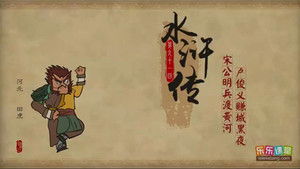 水浒传
宋公明兵渡黄河
卢俊义赚城黑夜
河北 田虎
乐乐课堂
leleketang.com